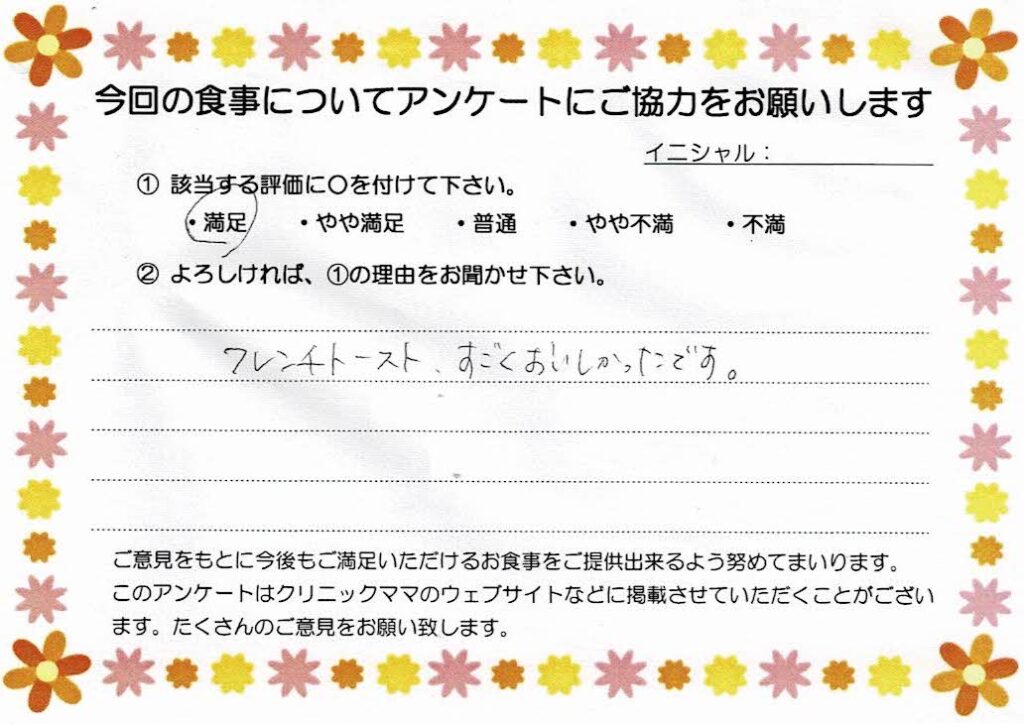 今回の食事についてアンケートにご協力をお願いします
イニシャル：
① 該当する評価に〇を付けて下さい。
・満足 ・やや満足 ・普通 ・やや不満 ・不満
② よろしければ、①の理由をお聞かせ下さい。
フレンチトースト、すごくおいしかったです。
ご意見をもとに今後もご満足いただけるお食事をご提供出来るよう努めてまいります。
このアンケートはクリニックママのウェブサイトなどに掲載させていただくことがござい
ます。たくさんのご意見をお願い致します。